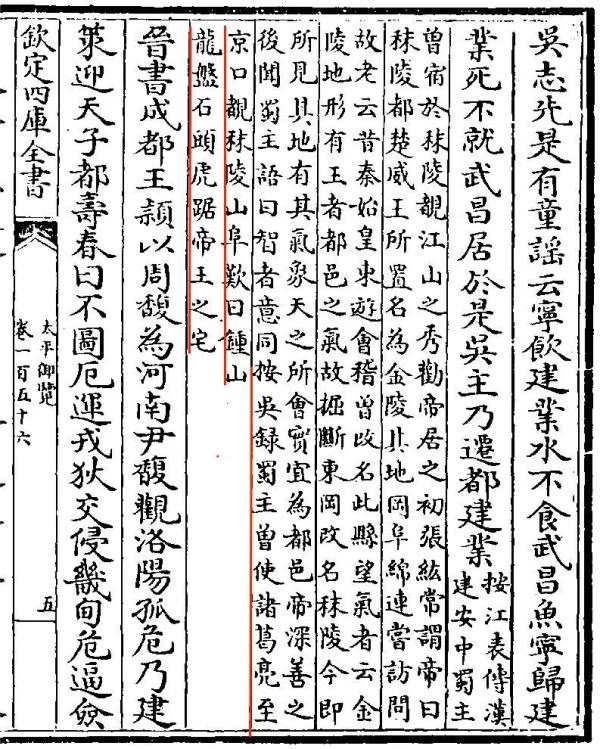 吳志先是有童謡云寧飲建業水不食武昌魚寧歸建
業死不就武昌居於是吳主乃遷都建業
按江表傳漢
建安中蜀主
曽宿於秣陵覩江山之秀勸帝居之初張紘常謂帝曰
秣陵都楚威王所置名為金陵其地岡阜綿連嘗訪問
故老云昔秦始皇東遊會稽曽改名此縣望氣者云金
陵地形有王者都邑之氣故掘斷東岡改名秣陵今即
所見具地有其氣象天之所會實宜為都邑帝深善之
後聞蜀主語曰智者意同按吳録蜀主曽使諸葛亮至
京口覩秣陵山阜歎曰鍾山
龍盤石頭虎踞帝王之宅
晉書成都王頴以周馥為河南尹馥觀洛陽孤危乃建
策迎天子都壽春曰不圖厄運戎狄交侵畿甸危逼僉
欽定四庫全書
太平御覽
卷一百五十六
五